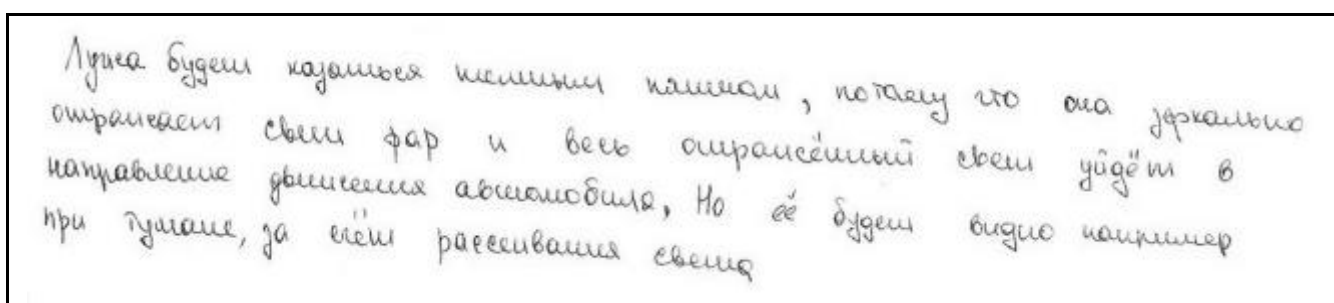 Лужа будет казаться темным пятном, потому что она зеркально
отражает свет фар и весь отражённый свет уйдёт в
направление движения автомобиля, Но её будет видно например
при тумане, за счёт рассеивания света